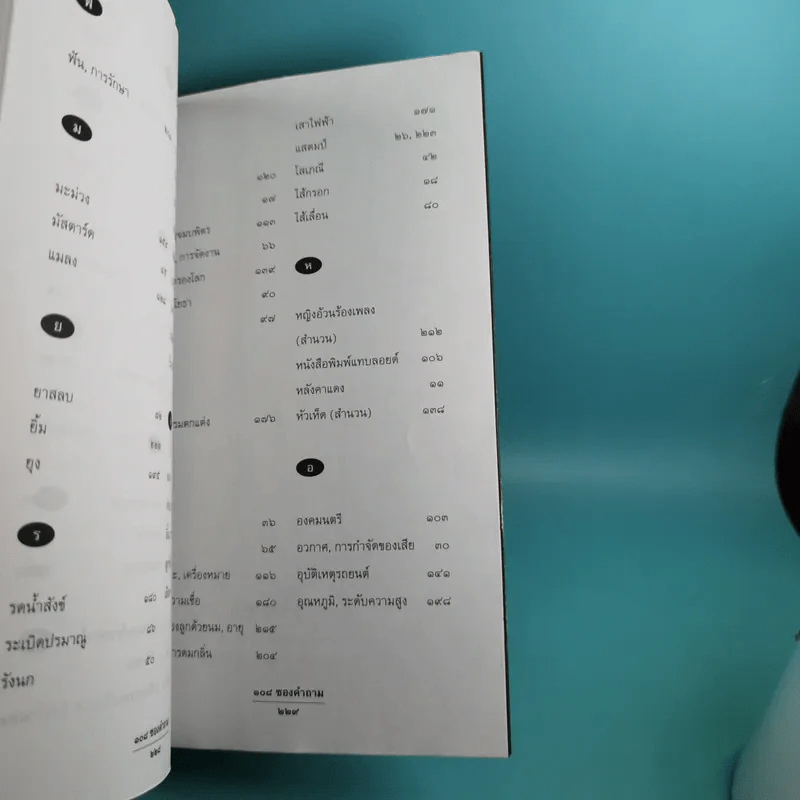 ฟัน, การรักษา
ม
มะม่วง
มัสตาร์ด
แมลง
ย
ยาสลบ
ยิ้ม
ยุง ๑๙๕
ร
รดน้ำสังข์ ๑๘๐
ระเบิดปรมาณู ๘๖
รังนก ๕๐
๑๐๘ ซองคำถาม
๒๒๘
๑๒๐
๑๗
๑๑๓
, การจัดงาน ๖๖
ของโลก ๑๓๙
๙๐
๙๗
รมตกแต่ง ๑๗๖
๓๖
๖๕
ะ, เครื่องหมาย ๑๑๖
วามเชื่อ ๑๘๐
งลูกด้วยนม, อายุ ๒๑๕
ารดมกลิ่น ๒๐๔
เสาไฟฟ้า ๑๗๑
แสตมป์ ๒๖, ๒๒๓
โสเภณี ๔๒
ไส้กรอก ๑๘
ไส้เลื่อน ๘๐
ห
หญิงอ้วนร้องเพลง
(สำนวน) ๒๑๒
หนังสือพิมพ์แทบลอยด์ ๑๐๖
หลังคาแดง ๑๑
หัวเห็ด (สำนวน) ๑๓๘
อ
องคมนตรี ๑๐๓
อวกาศ, การกำจัดของเสีย ๓๐
อุบัติเหตุรถยนต์ ๑๔๑
อุณหภูมิ, ระดับความสูง ๑๙๘
๑๐๘ ซองคำถาม
๒๒๙